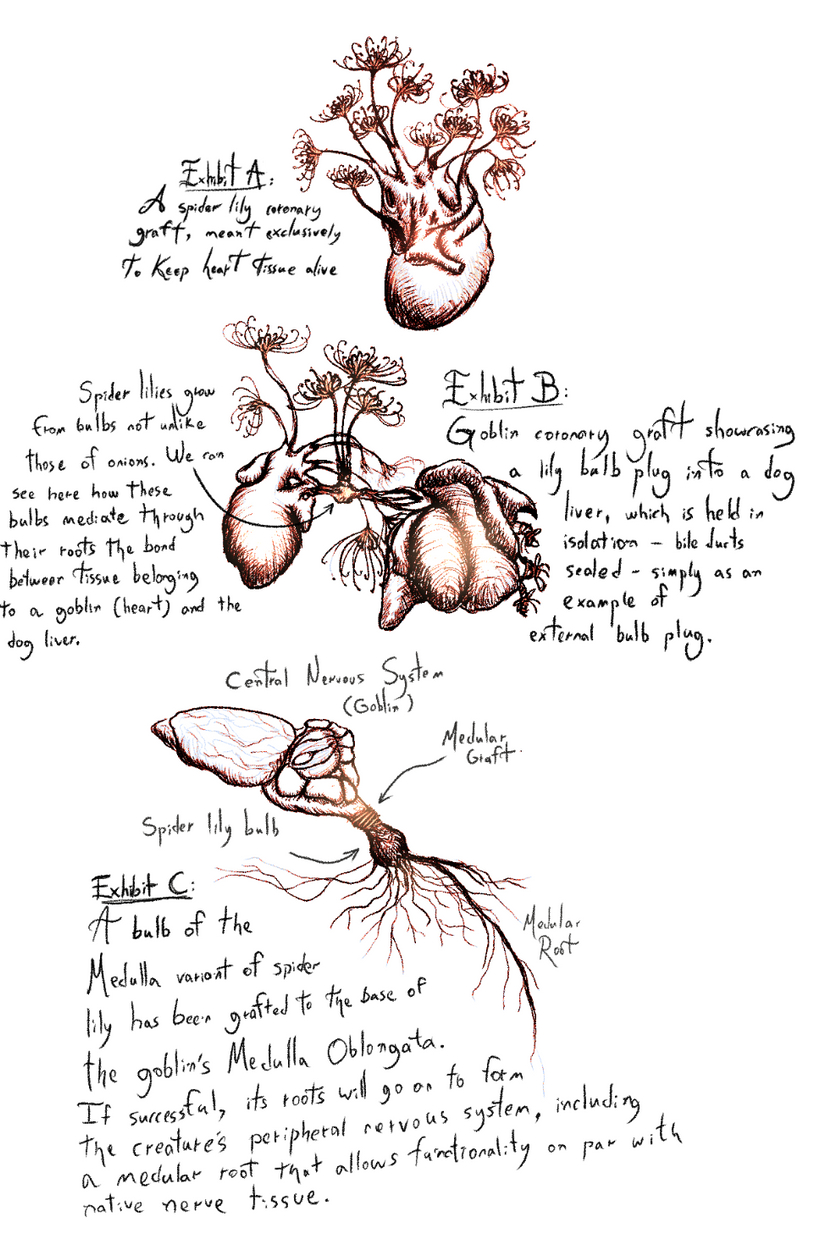 Exhibit A:
A spider lily coronary
graft, meant exclusively
to keep heart tissue alive
Spider lilies grow
from bulbs not unlike
those of onions. We can
see here how these
bulbs mediate through
their roots the bond
between tissue belonging
to a goblin (heart) and the
dog liver.
Exhibit B:
Goblin coronary graft showcasing
a lily bulb plug into a dog
liver, which is held in
isolation - bile ducts
sealed - simply as an
example of
external bulb plug.
Central Nervous System
(Goblin)
Medular
Graft
Spider lily bulb
Medular
Root
Exhibit C:
A bulb of the
Medulla variant of spider
lily has been grafted to the base of
the goblin's Medulla Oblongata.
If successful, its roots will go on to form
the creature's peripheral nervous system, including
a medular root that allows functionality on par with
native nerve tissue.